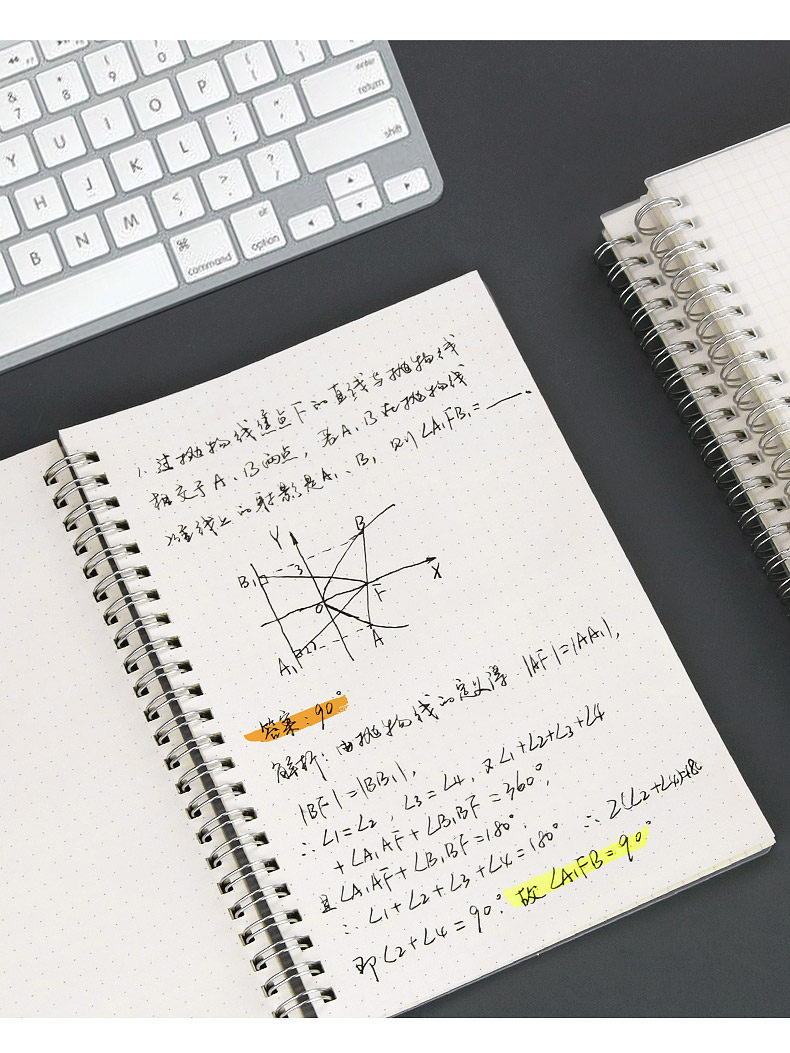 &
7
*
8
(
9
)
0
return
Y
U
I
O
P
shift
H
J
K
L
B
N
M
⌘
command
alt
option
1. 过抛物线焦点F的直线与抛物线
相交于A、B两点，若A、B在抛物线
准线上的射影是A₁、B₁ 则∠A₁FB₁=___。
Y
B
B₁
3
X
F
O
A
A₁
答案：90°
解析：由抛物线的定义得 |AF|=|AA₁|,
|BF|=|BB₁|,
∴ ∠1=∠2, ∠3=∠4, 又∠1+∠2+∠3+∠4
+∠A₁AF+∠B₁BF=360°,
且∠A₁AF+∠B₁BF=180°,
∴ ∠1+∠2+∠3+∠4=180° ∴ 2(∠2+∠4)=180
即∠2+∠4=90° 故∠A₁FB=90°